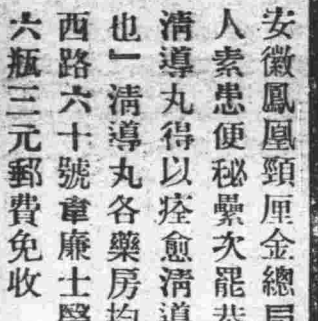 安徽鳳凰頸厘金總局
人素患便秘纍次罷
清導丸得以痊愈清導
也』清導丸各藥房均
西路六十號韋廉士醫
六瓶三元郵費免收